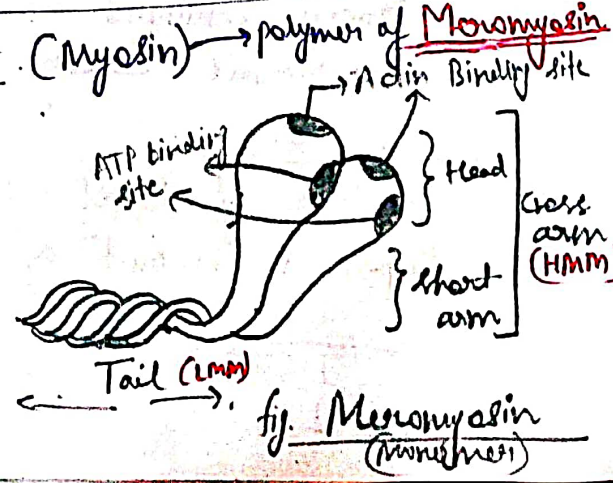 (Myosin) → polymer of Meromyosin
Actin Binding site
ATP binding
site
Head
Cross
arm
(HMM)
Short
arm
Tail (LMM)
fig. Meromyosin
(Monomer)